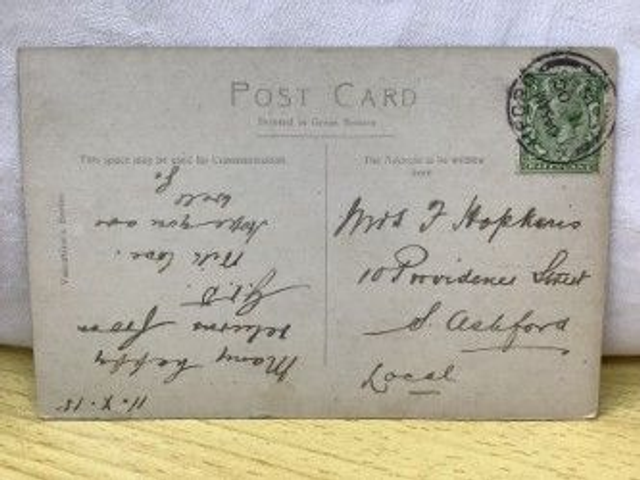 POST CARD
Printed in Great Britain
This space may be used for Communication
The Address to be written
here
11. X. 15
Many happy
returns from
With love.
hope you are
well
Mrs F Hopkins
10 Providence Street
S. Ashford
Local